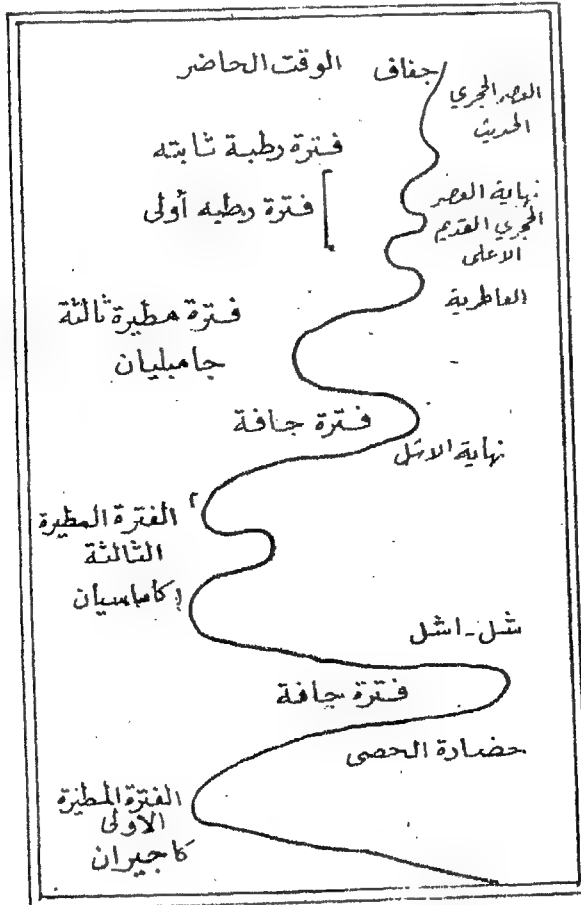 الوقت الحاضر جفاف
العصر الحجري
الحديث
فترة رطبة ثابته
فترة رطبه أولى
نهاية العصر
الحجري القديم
الاعلى
العاطرية
فترة مطيرة ثالثة
جامبليان
فترة جافة
نهاية الاشل
٢ الفترة المطيرة
الثالثة
كاماسيان
شل - اشل
فترة جافة
حضارة الحصى
الفترة المطيرة
الاولى
كاجيران